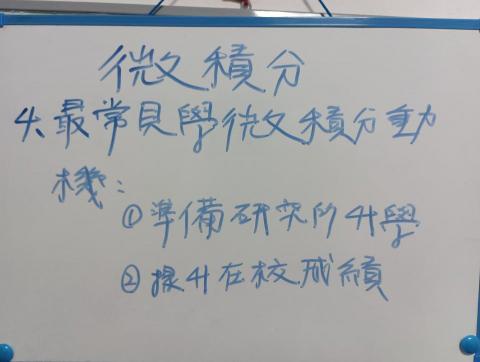 微積分
4、最常見學微積分動
機：
①準備研究所升學
②提升在校成績